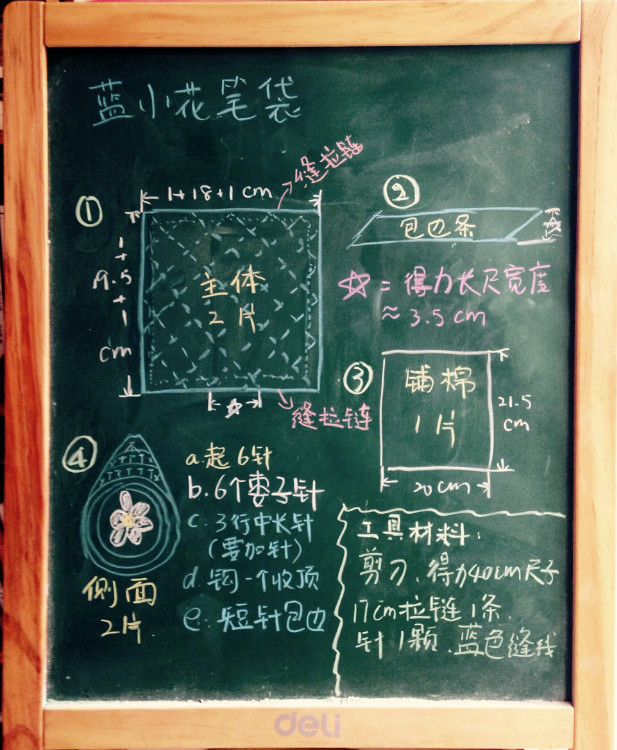 蓝小花笔袋
缝拉链
①
1+18+1 cm
1+19.5+1 cm
主体
2片
缝拉链
②
包边条
☆
☆ = 得力长尺宽度
≈ 3.5 cm
③
铺棉
1片
21.5
cm
20cm
④
侧面
2片
a.起6针
b.6个枣子针
c.3行中长针
(要加针)
d.钩一个收顶
e.短针包边
工具材料:
剪刀、得力40cm尺子
17cm拉链1条.
针1颗.蓝色缝线
deli